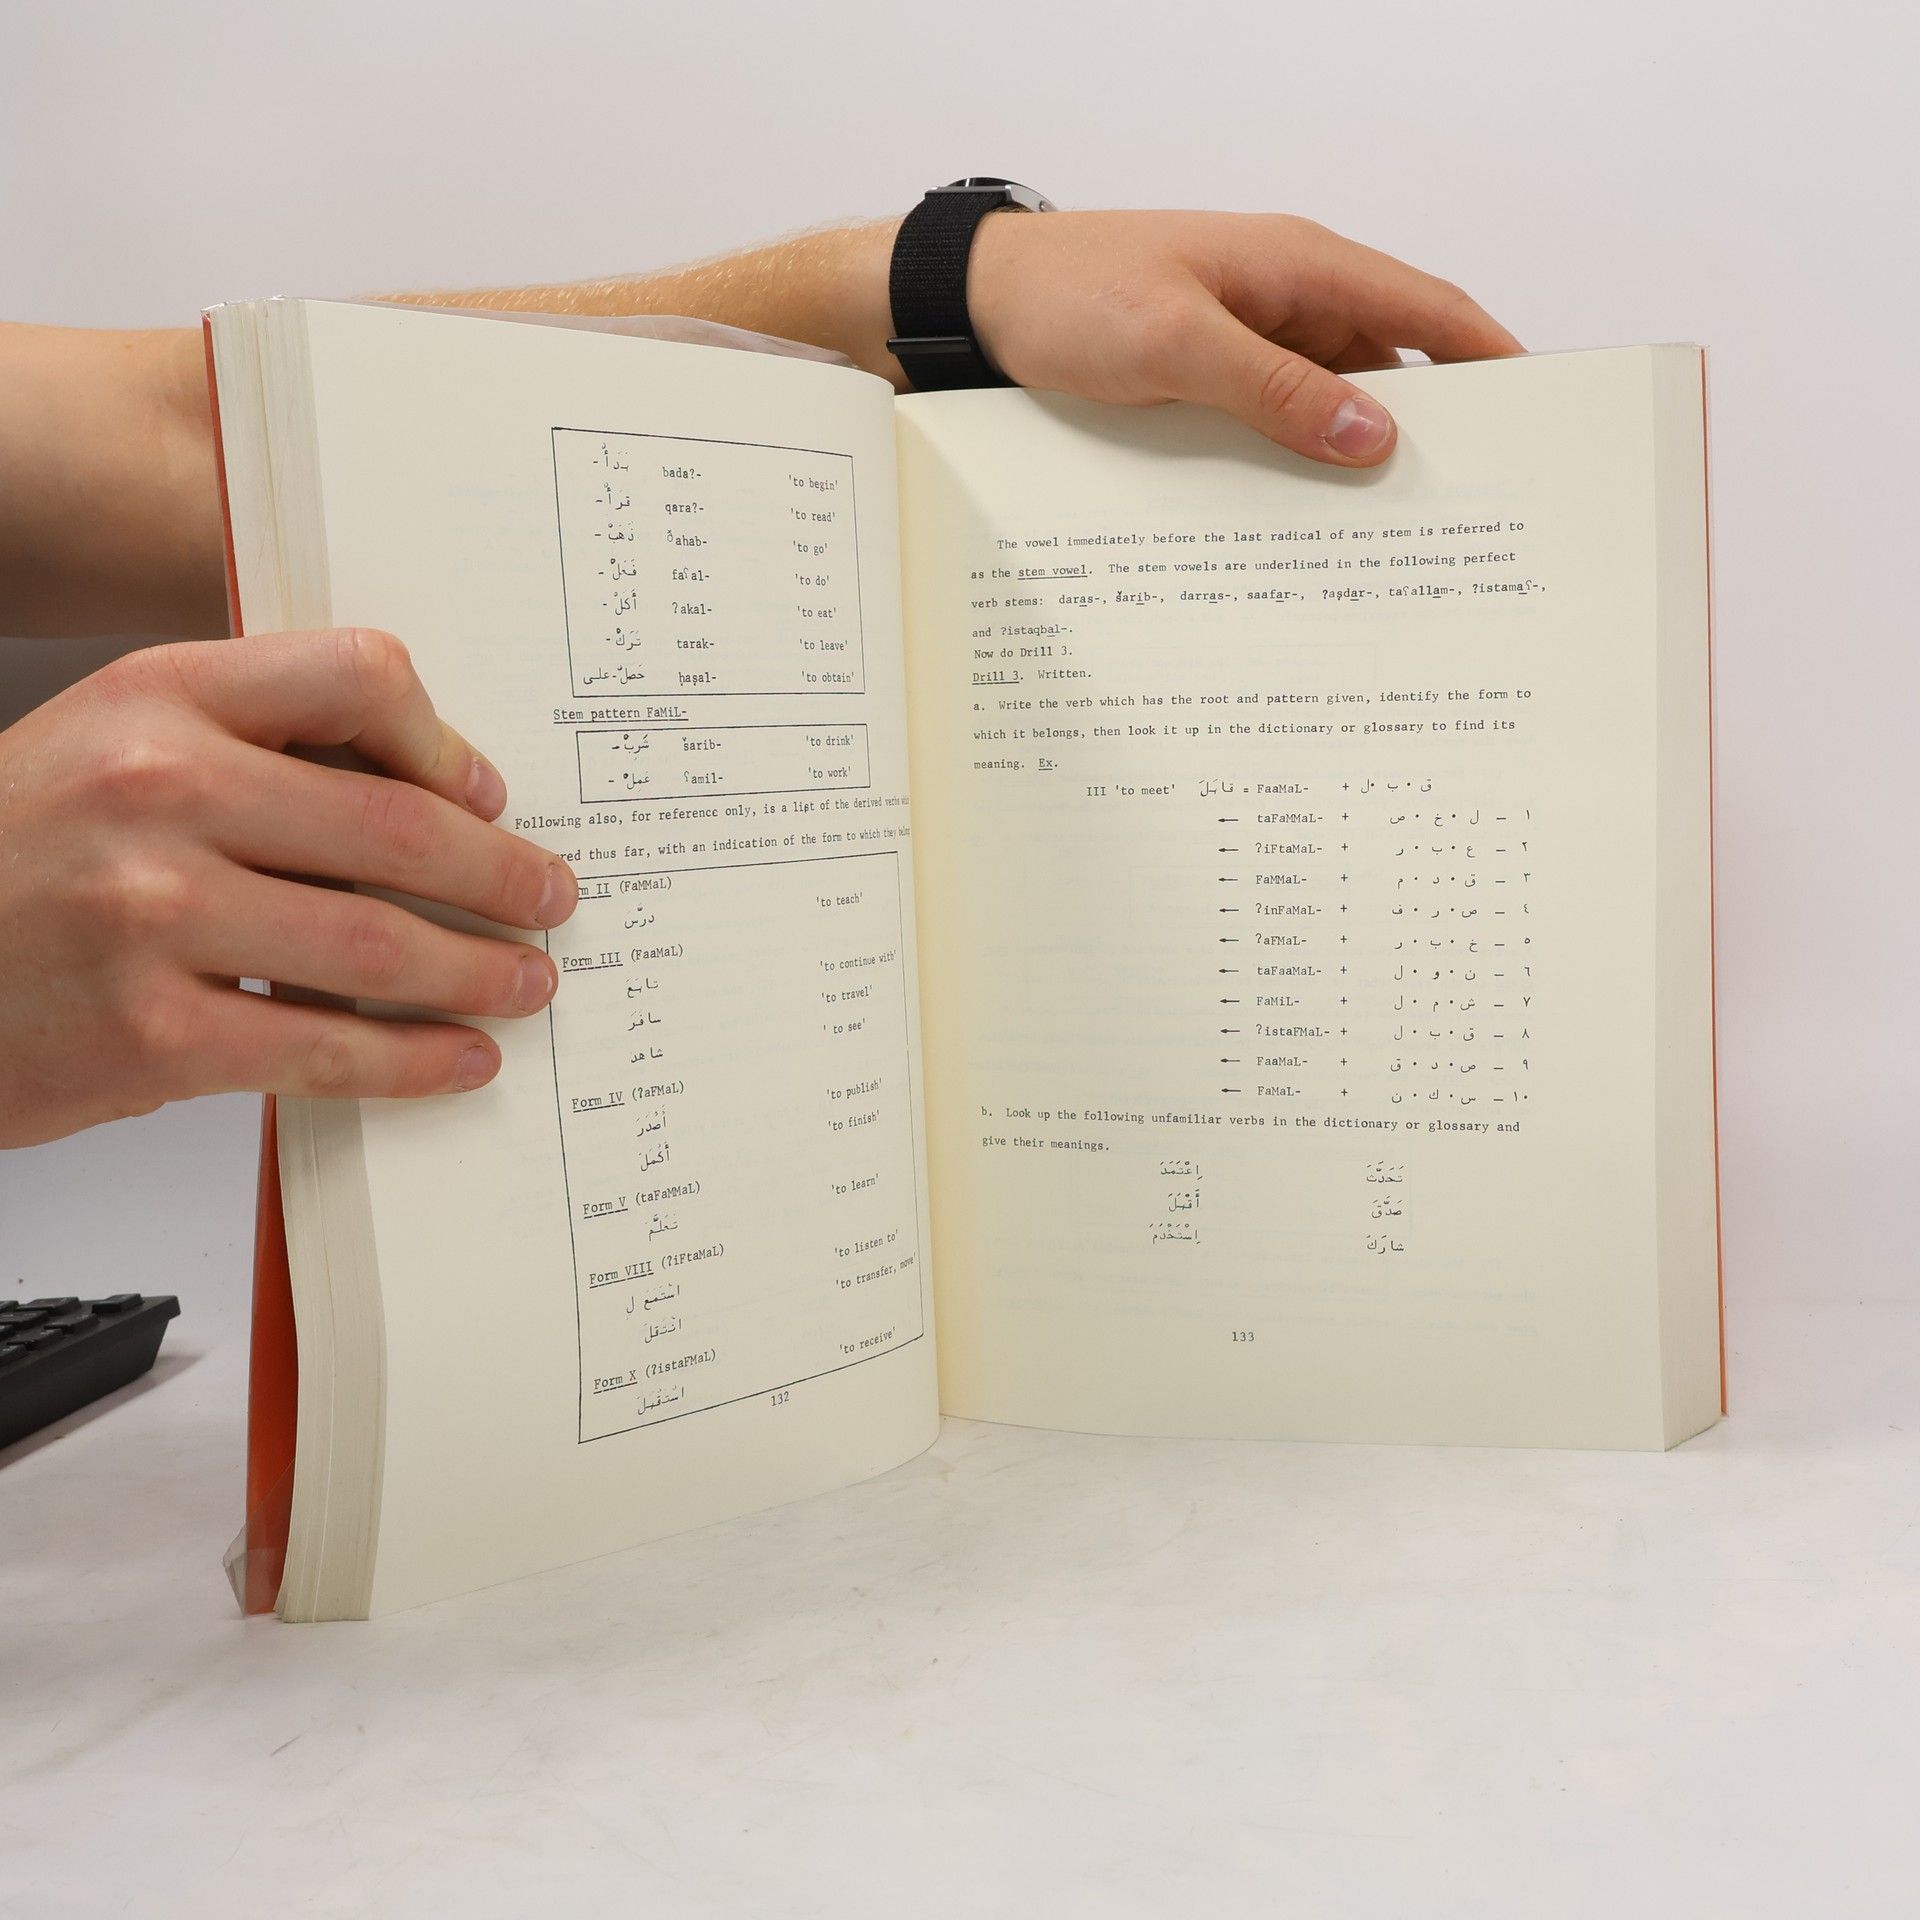 بَدَأْ- bada?- 'to begin'
قَرَأْ- qara?- 'to read'
ذَهَبْ- ðahab- 'to go'
فَعَلْ- faʕal- 'to do'
أَكَلْ- ?akal- 'to eat'
تَرَكْ- tarak- 'to leave'
حَصَلْ-على ḥaṣal- 'to obtain'
Stem pattern FaMiL-
شَرِبْ- šarib- 'to drink'
عَمِلْ- ʕamil- 'to work'
Following also, for reference only, is a list of the derived verbs
thus far, with an indication of the form to which they
II (FaMMaL)
درَّسَ 'to teach'
Form III (FaaMaL)
تابَعَ 'to continue with'
سافَرَ 'to travel'
شاهد 'to see'
Form IV (?aFMaL)
أَصْدَرَ 'to publish'
أَكْمَلَ 'to finish'
Form V (taFaMMaL)
تَعَلَّمَ 'to learn'
Form VIII (?iFtaMaL)
اسْتَمَعَ لِ 'to listen to'
انْتَقَلَ 'to transfer, move'
Form X (?istaFMaL)
اسْتَقْبَلَ 'to receive'
132
The vowel immediately before the last radical of any stem is referred to
as the stem vowel. The stem vowels are underlined in the following perfect
verb stems: daras-, šarib-, darras-, saafar-, ?aṣdar-, taʕallam-, ?istamaʕ-,
and ?istaqbal-.
Now do Drill 3.
Drill 3. Written.
a. Write the verb which has the root and pattern given, identify the form to
which it belongs, then look it up in the dictionary or glossary to find its
meaning. Ex.
III 'to meet' قابَلَ = FaaMaL- + ق · ب · ل
← taFaMMaL- + ١ – ل · خ · ص
← ?iFtaMaL- + ٢ – ع · ب · ر
← FaMMaL- + ٣ – ق · د · م
← ?inFaMaL- + ٤ – ص · ر · ف
← ?aFMaL- + ٥ – خ · ب · ر
← taFaaMaL- + ٦ – ن · و · ل
← FaMiL- + ٧ – ش · م · ل
← ?istaFMaL- + ٨ – ق · ب · ل
← FaaMaL- + ٩ – ص · د · ق
← FaMaL- + ١٠ – س · ك · ن
b. Look up the following unfamiliar verbs in the dictionary or glossary and
give their meanings.
تَحَدَّثَ اِعْتَمَدَ
صَدَّقَ أَقْبَلَ
شارَكَ اِسْتَخْدَمَ
133